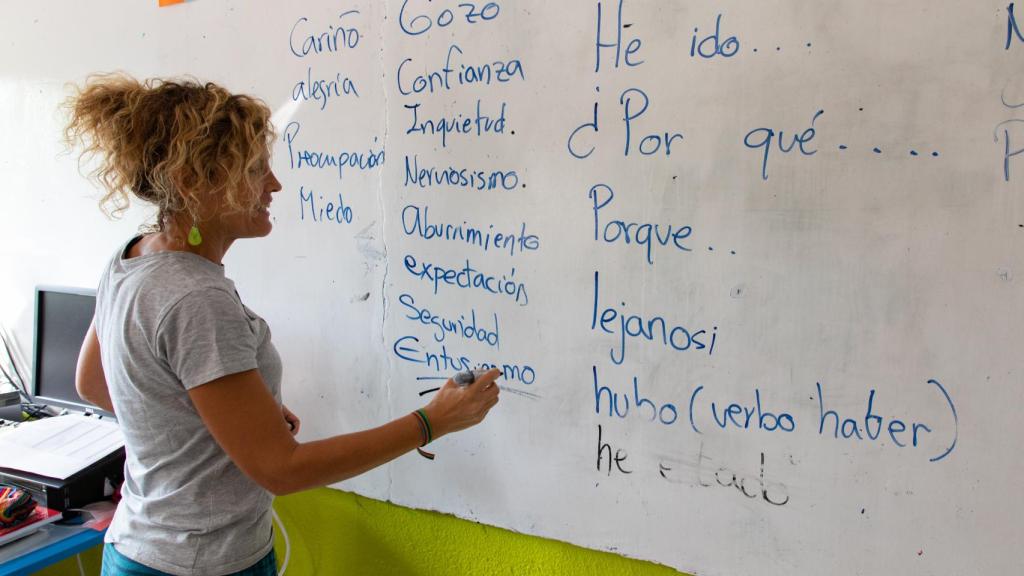 Cariño
alegría
Preocupación
Miedo
Gozo
Confianza
Inquietud.
Nerviosismo.
Aburrimiento
expectación
Seguridad
He ido....
¿Por qué.....
Porque..
lejanosi
hubo (verbo haber)
he estado